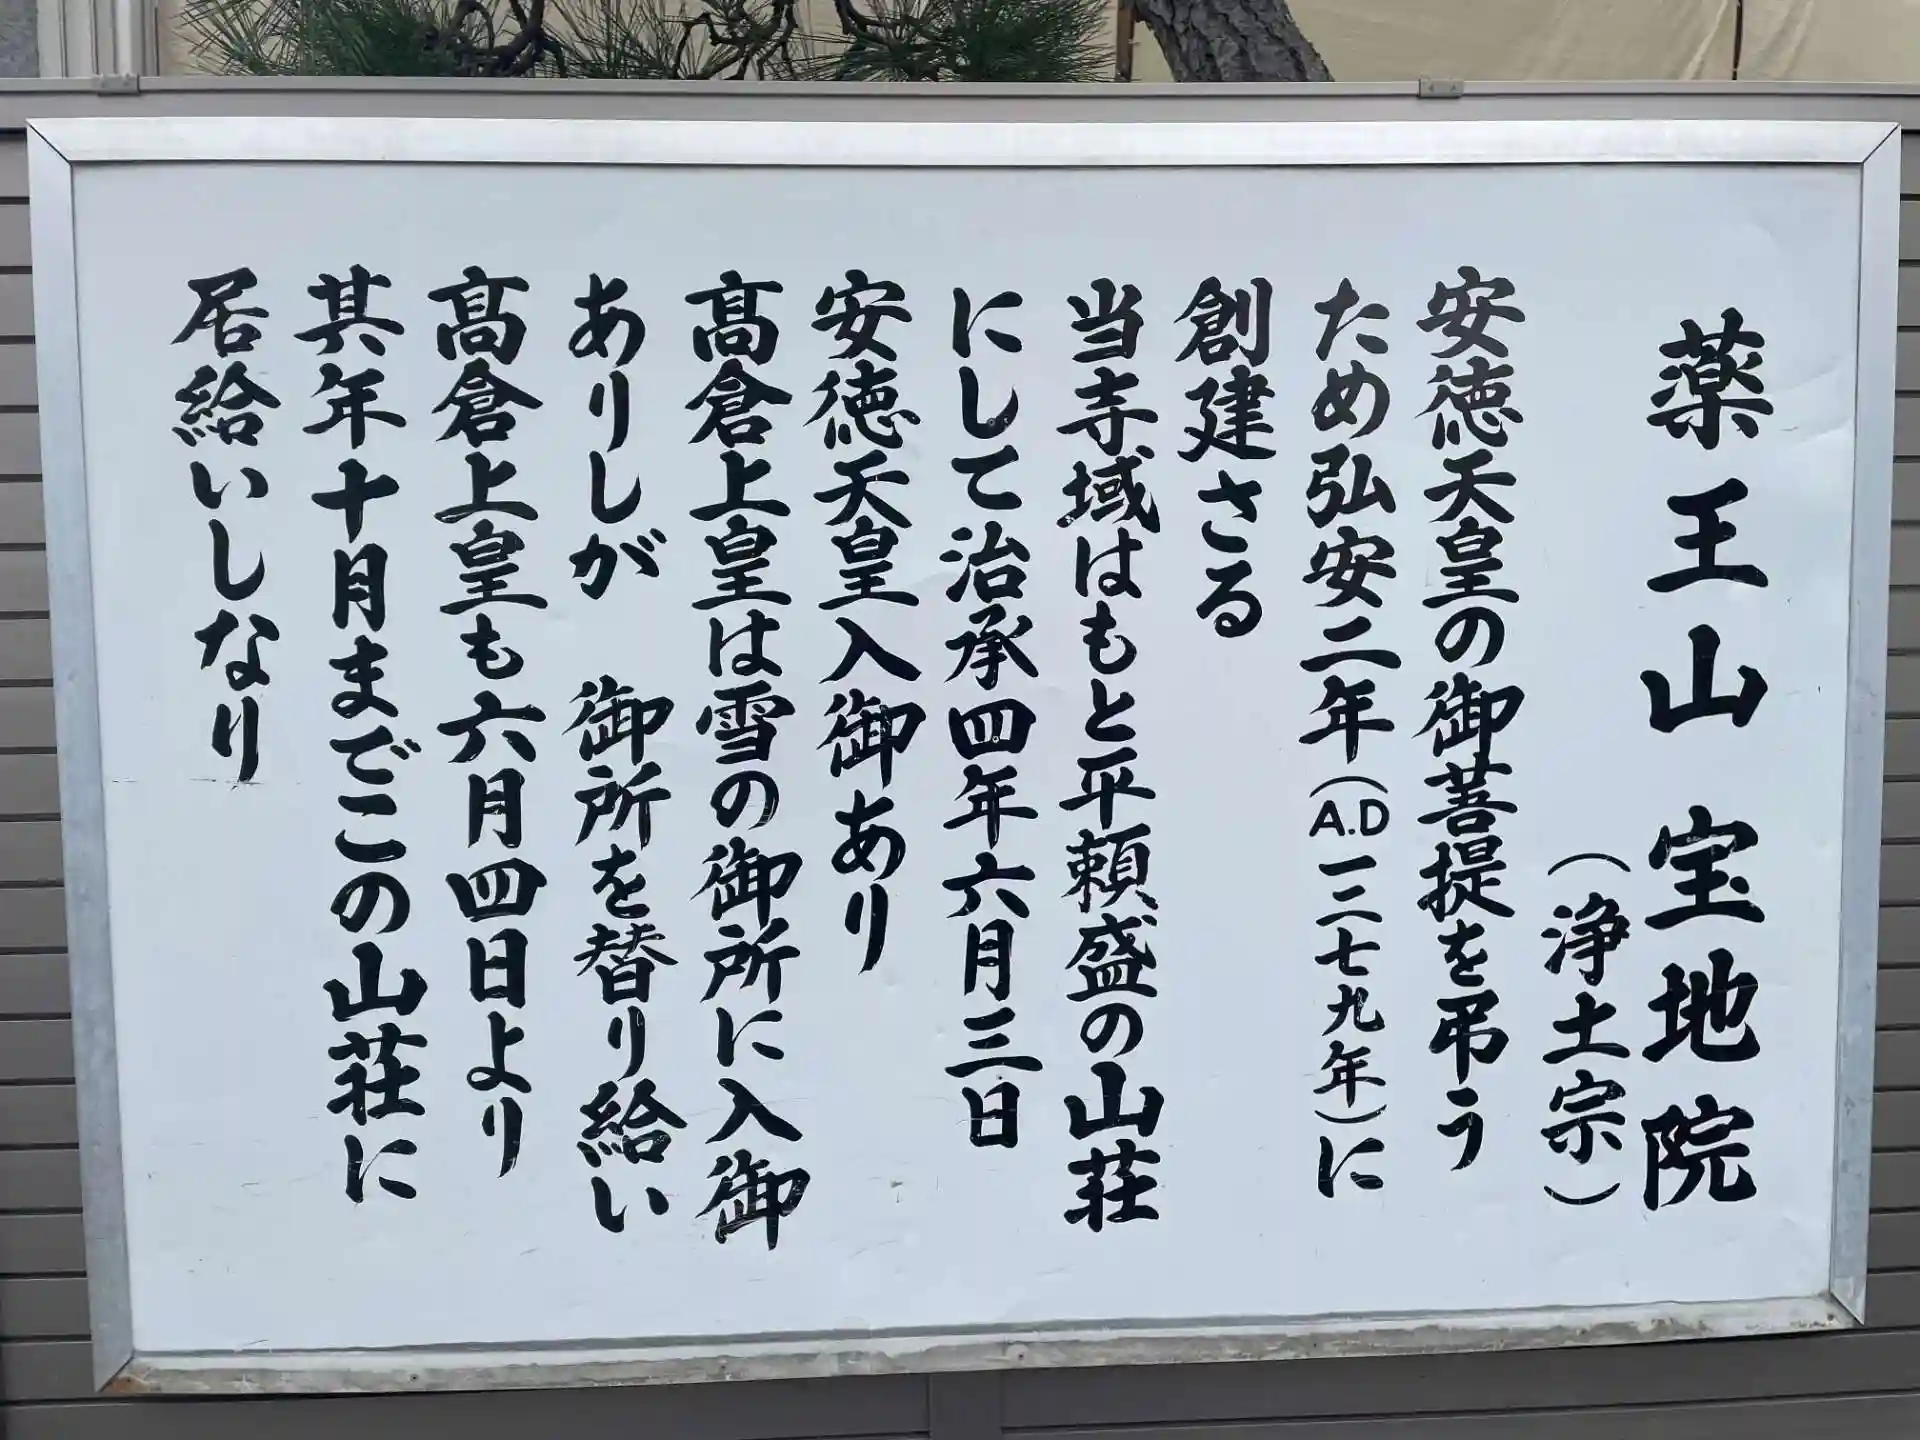 薬王山 宝地院
（浄土宗）
安徳天皇の御菩提を弔う
ため弘安二年（A.D一二七九年）に
創建さる
当寺域はもと平頼盛の山荘
にして治承四年六月三日
安徳天皇入御あり
髙倉上皇は雪の御所に入御
ありしが 御所を替り給い
髙倉上皇も六月四日より
其年十月までこの山荘に
居給いしなり